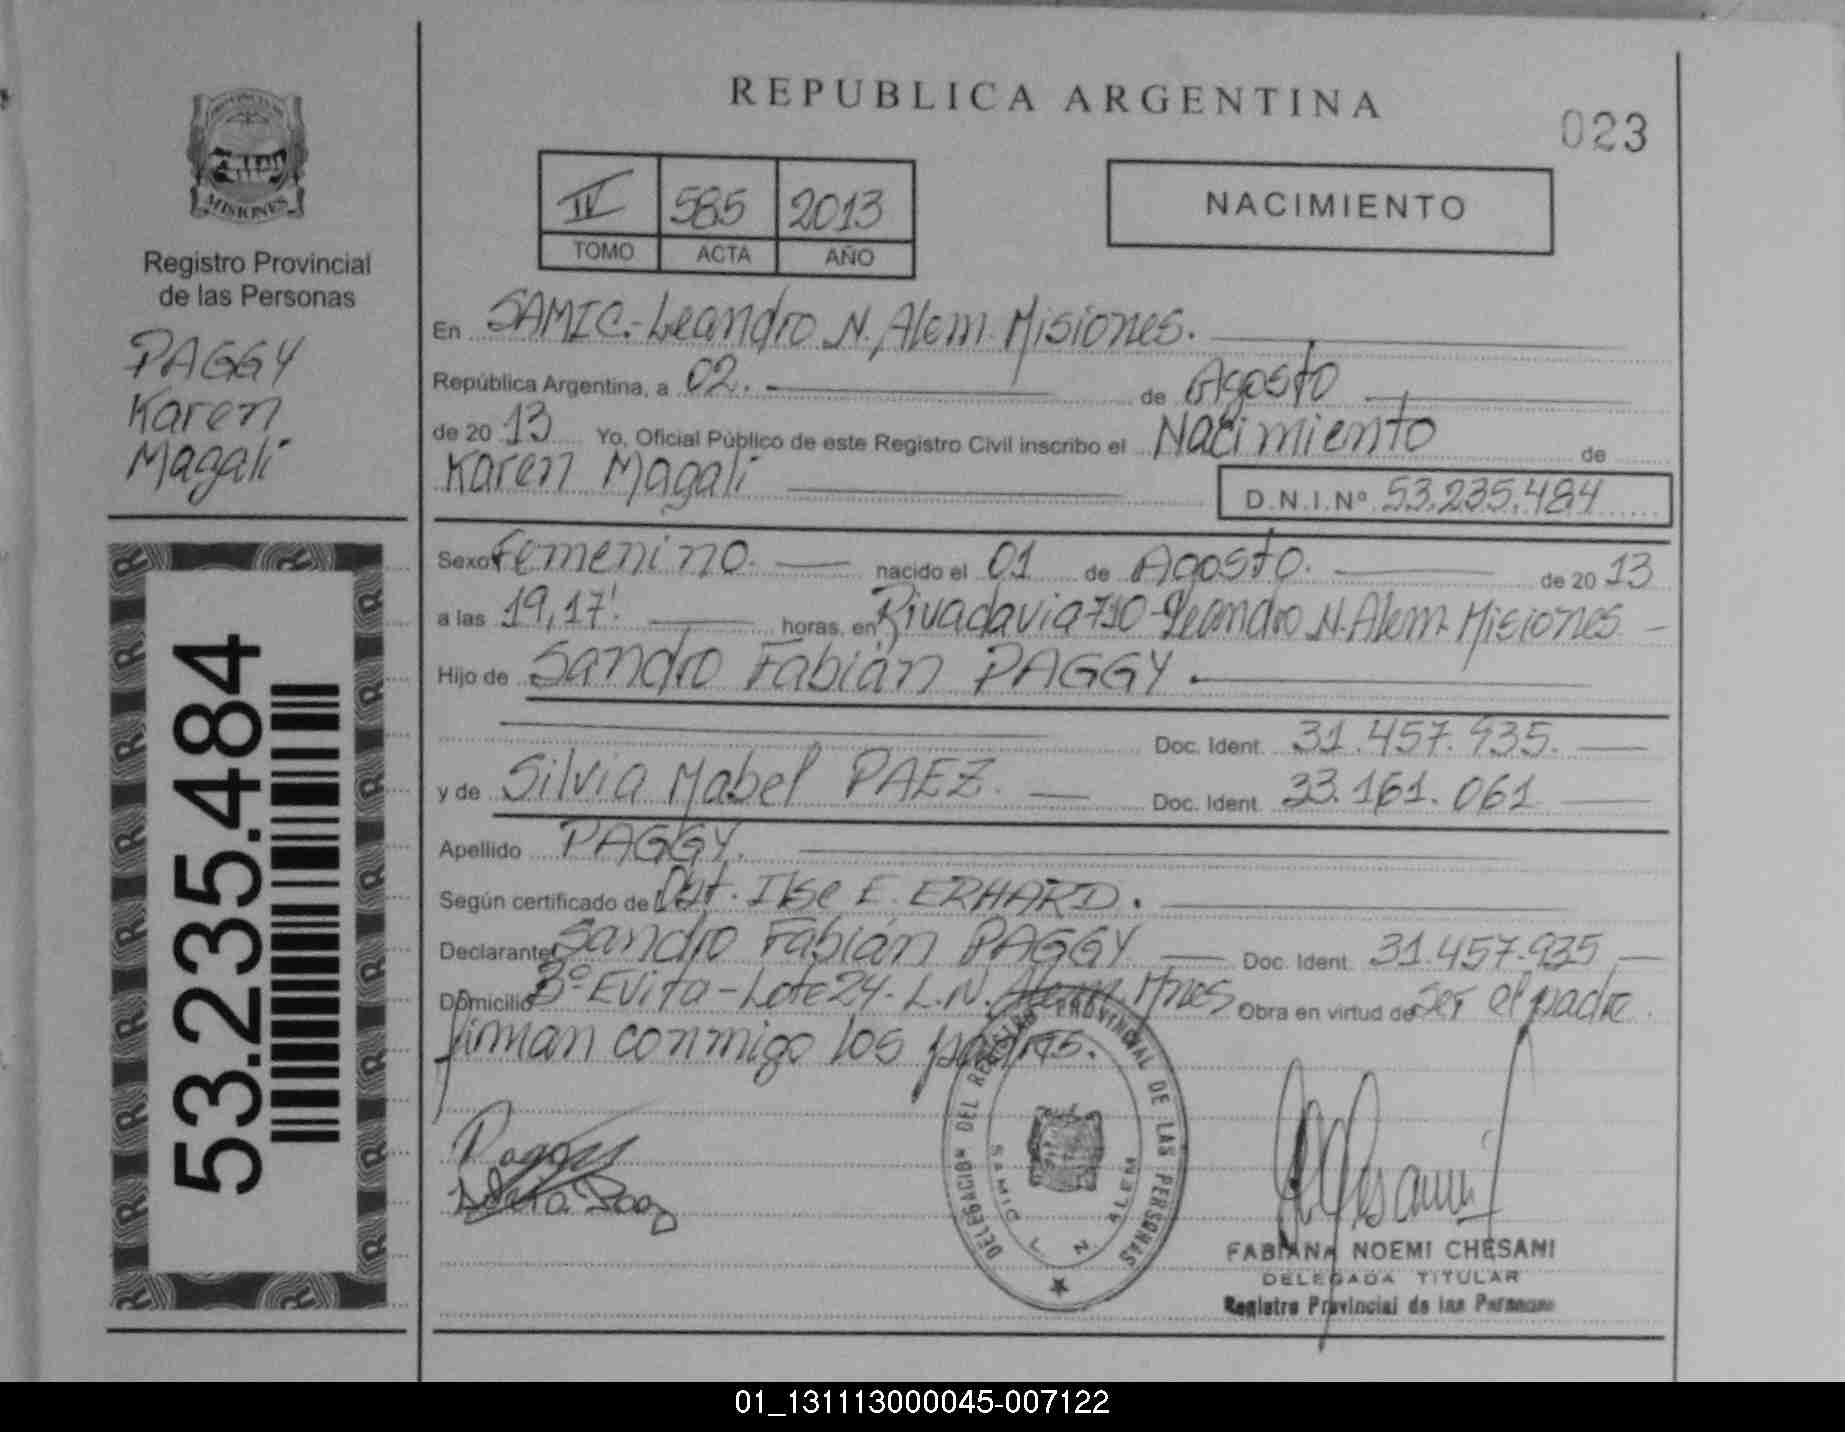 REPUBLICA ARGENTINA
023
PROVINCIA DE
MISIONES
Registro Provincial
de las Personas
PAGGY
Karen
Magali
53.235.484
IV 585 2013
TOMO ACTA AÑO
NACIMIENTO
En SAMIC.-Leandro N. Alem. Misiones.
República Argentina, a 02. de Agosto
de 20 13 Yo, Oficial Público de este Registro Civil inscribo el Nacimiento de
Karen Magali D.N.I.Nº 53.235.484
Sexo Femenino. nacido el 01 de Agosto. de 20 13
a las 19,17' horas, en Rivadavia 710-Leandro N. Alem. Misiones
Hijo de Sandro Fabián PAGGY
Doc. Ident. 31.457.935.
y de Silvia Mabel PAEZ. Doc. Ident. 33.161.061
Apellido PAGGY.
Según certificado de Ilse E. ERHARD.
Declarante Sandro Fabián PAGGY Doc. Ident. 31.457.935
Domicilio Bº Evita-Lote 24- L.N. Alem. Mnes Obra en virtud de ser el padre.
firman conmigo los padres.
Paggy
DELEGACION DEL REGISTRO PROVINCIAL DE LAS PERSONAS
SAMIC L. N. ALEM
FABIANA NOEMI CHESANI
DELEGADA TITULAR
Registro Provincial de las Personas
01_131113000045-007122